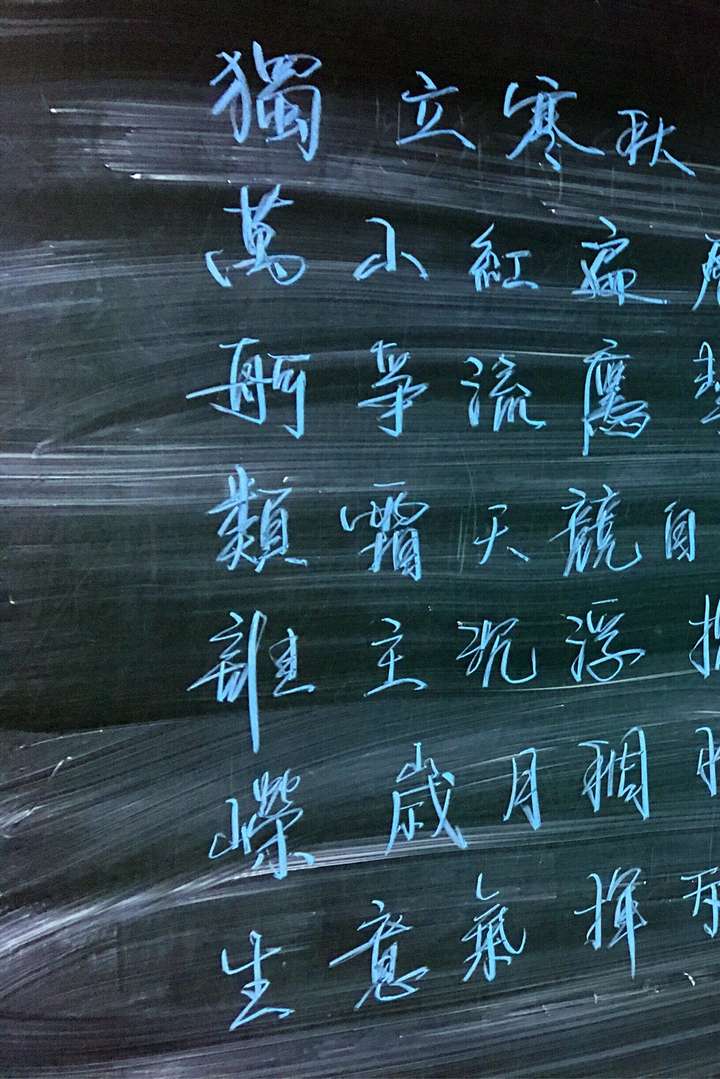 獨立寒秋
萬山紅遍
舸爭流鷹
類霜天競自
誰主沉浮
嶸歲月稠
生意氣揮